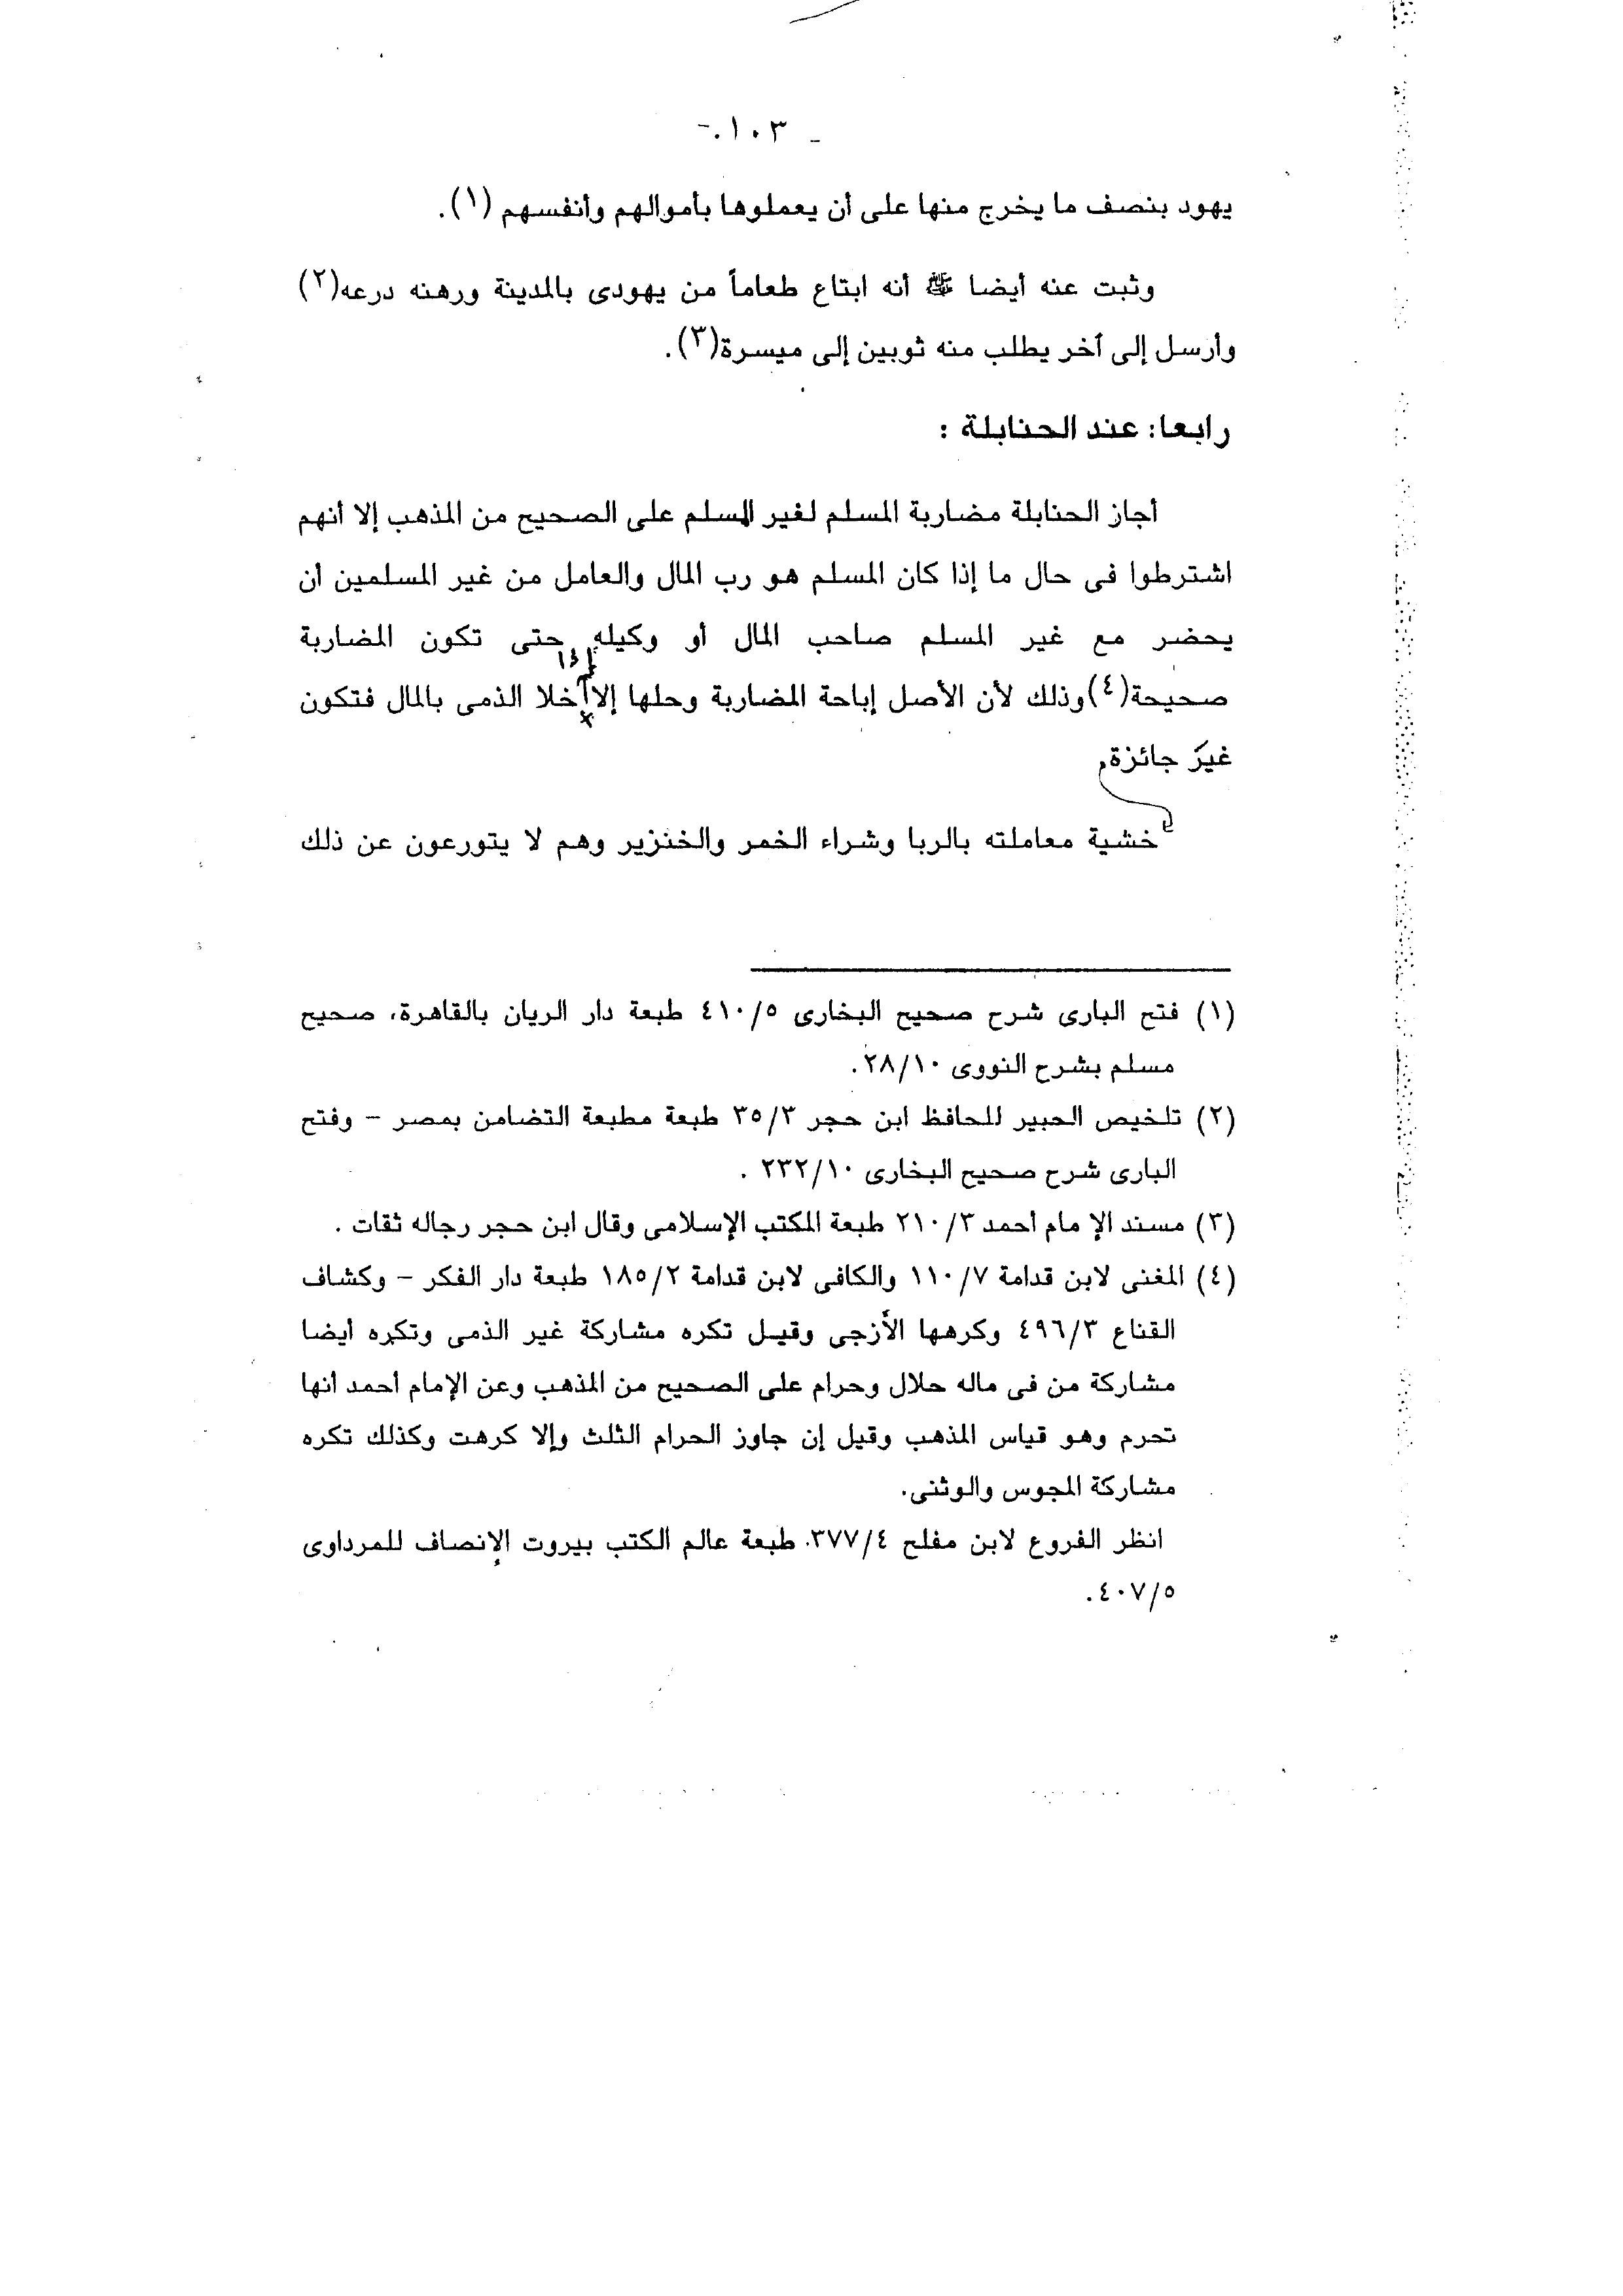 - ١٠٣ -
يهود بنصف ما يخرج منها على أن يعملوها بأموالهم وأنفسهم (١).
وثبت عنه أيضا ﷺ أنه ابتاع طعاماً من يهودى بالمدينة ورهنه درعه(٢)
وأرسل إلى آخر يطلب منه ثوبين إلى ميسرة(٣).
رابعا: عند الحنابلة :
أجاز الحنابلة مضاربة المسلم لغير المسلم على الصحيح من المذهب إلا أنهم
اشترطوا فى حال ما إذا كان المسلم هو رب المال والعامل من غير المسلمين أن
يحضر مع غير المسلم صاحب المال أو وكيله حتى تكون المضاربة
صحيحة(٤)وذلك لأن الأصل إباحة المضاربة وحلها إلا إذا خلا الذمى بالمال فتكون
غير جائزة
خشية معاملته بالربا وشراء الخمر والخنزير وهم لا يتورعون عن ذلك
(١) فتح البارى شرح صحيح البخارى ٤١٠/٥ طبعة دار الريان بالقاهرة، صحيح
مسلم بشرح النووى ٢٨/١٠.
(٢) تلخيص الحبير للحافظ ابن حجر ٣٥/٣ طبعة مطبعة التضامن بمصر – وفتح
البارى شرح صحيح البخارى ٢٣٢/١٠ .
(٣) مسند الإ مام أحمد ٢١٠/٣ طبعة المكتب الإسلامى وقال ابن حجر رجاله ثقات .
(٤) المغنى لابن قدامة ١١٠/٧ والكافى لابن قدامة ١٨٥/٢ طبعة دار الفكر – وكشاف
القناع ٤٩٦/٣ وكرهها الأزجى وقيل تكره مشاركة غير الذمى وتكره أيضا
مشاركة من فى ماله حلال وحرام على الصحيح من المذهب وعن الإمام أحمد أنها
تحرم وهو قياس المذهب وقيل إن جاوز الحرام الثلث وإلا كرهت وكذلك تكره
مشاركة المجوس والوثنى.
انظر الفروع لابن مفلح ٣٧٧/٤. طبعة عالم الكتب بيروت الإنصاف للمرداوى
٤٠٧/٥.